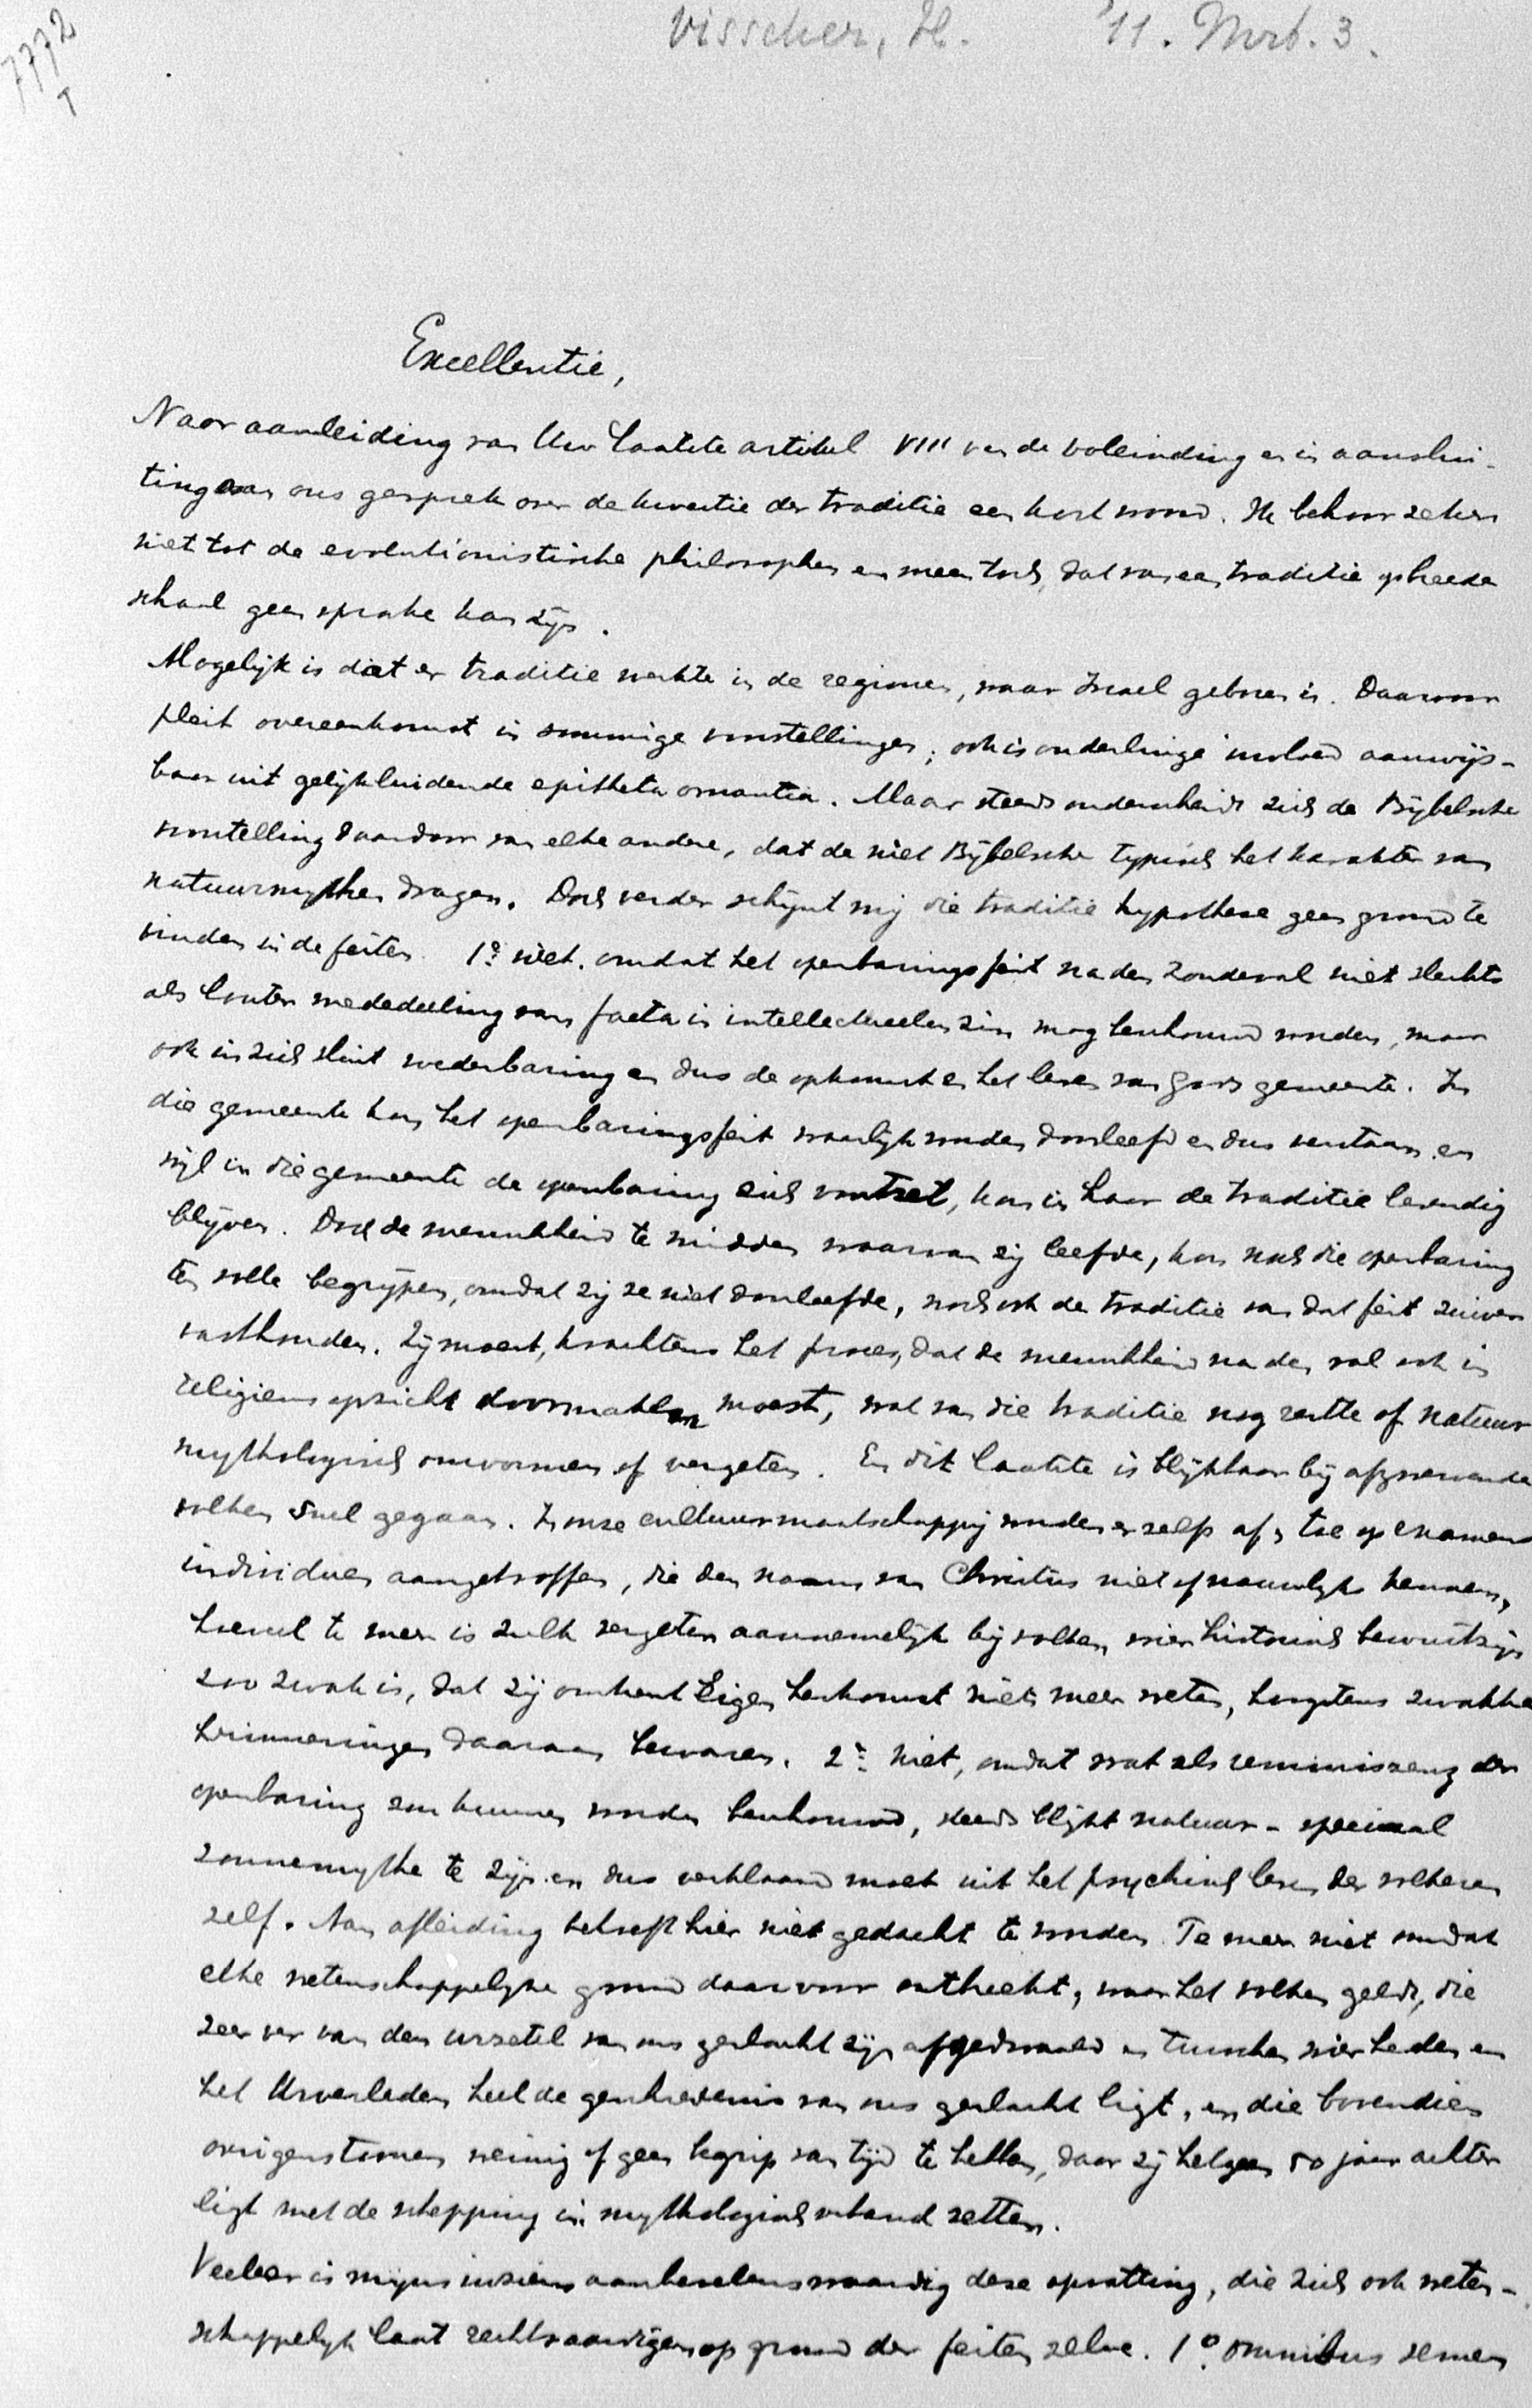 7772
T
Visscher, H. '11. Mrt. 3.
Excellentie,
Naar aanleiding van Uw laatste artikel VIII van de voleinding en in aanslui-
ting aan ons gesprek over de kwestie der traditie een kort woord. Ik behoor zeker
niet tot de evolutionistische philosophen en meen toch, dat van een traditie op breede
schaal geen sprake kan zijn.
Mogelijk is dat er traditie werkte in de regionen, waar Israel geboren is. Daarvoor
pleit overeenkomst in sommige voorstellingen; ook is onderlinge invloed aanwijs-
baar uit gelijkluidende epitheta ornantia. Maar steeds onderscheidt zich de Bijbelsche
voorstelling daardoor van elke andere, dat de niet Bijbelsche typisch het karakter van
natuurmythen dragen. Doch verder schijnt mij die traditie hypothese geen grond te
vinden in de feiten. 1o. niet, omdat het openbaringsfeit na den zondeval niet slechts
als louter mededeeling van facta in intellectueelen zin mag beschouwd worden, maar
ook in zich sluit wederbaring en dus de opkomst en het leven van Gods gemeente. In
die gemeente kon het openbaringsfeit waarlijk worden doorleefd en dus verstaan en
wijl in die gemeente de openbaring zich voortzet, kon in haar de traditie levendig
blijven. Doch de menschheid te midden waarvan zij leefde, kon noch die openbaring
ten volle begrijpen, omdat zij ze niet doorleefde, noch ook de traditie van dat feit zuiver
vasthouden. Zij moest, krachtens het proces, dat de menschheid na den val ook in
religieus opzicht doormaken moest, wat van die traditie nog restte of natuur
mythologisch omvormen of vergeten. En dit laatste is blijkbaar bij afgezworvende
volken snel gegaan. In onze cultuurmaatschappij worden er zelfs af en toe op examens
individuen aangetroffen, die den naam van Christus niet of nauwelijks kennen,
hoeveel te meer is zulk vergeten aannemelijk bij volken, wier historisch bewustzijn
zoo zwak is, dat zij omtrent eigen herkomst niets meer weten, hoogstens zwakke
herinneringen daaraan bewaren. 2o. niet, omdat wat als reminiszenz der
openbaring zou kunnen worden beschouwd, steeds blijkt natuur- speciaal
zonnemythe te zijn en dus verklaard moet uit het psychisch leven der volkeren
zelf. Aan afleiding behoeft hier niet gedacht te worden. Te meer niet omdat
elke wetenschappelijke grond daarvoor ontbreekt, waar het volken geldt, die
zeer ver van den urzetel van ons geslacht zijn afgedwaald en tusschen wier heden en
het Urverleden heel de geschiedenis van ons geslacht ligt, en die bovendien
overigens toonen weinig of geen begrip van tijd te hebben, daar zij hetgeen 50 jaar achter
ligt met de schepping in mythologisch verband zetten.
Veeleer is mijns inziens aanbevelenswaardig deze opvatting, die zich ook weten-
schappelijk laat rechtvaardigen op grond der feiten zelve. 1o. omnibus semen